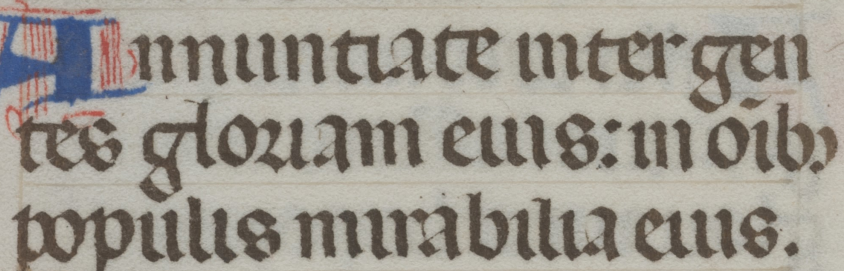 Annuntiate inter gen
tes gloriam eius: in oi͞bꝫ
populis mirabilia eius.